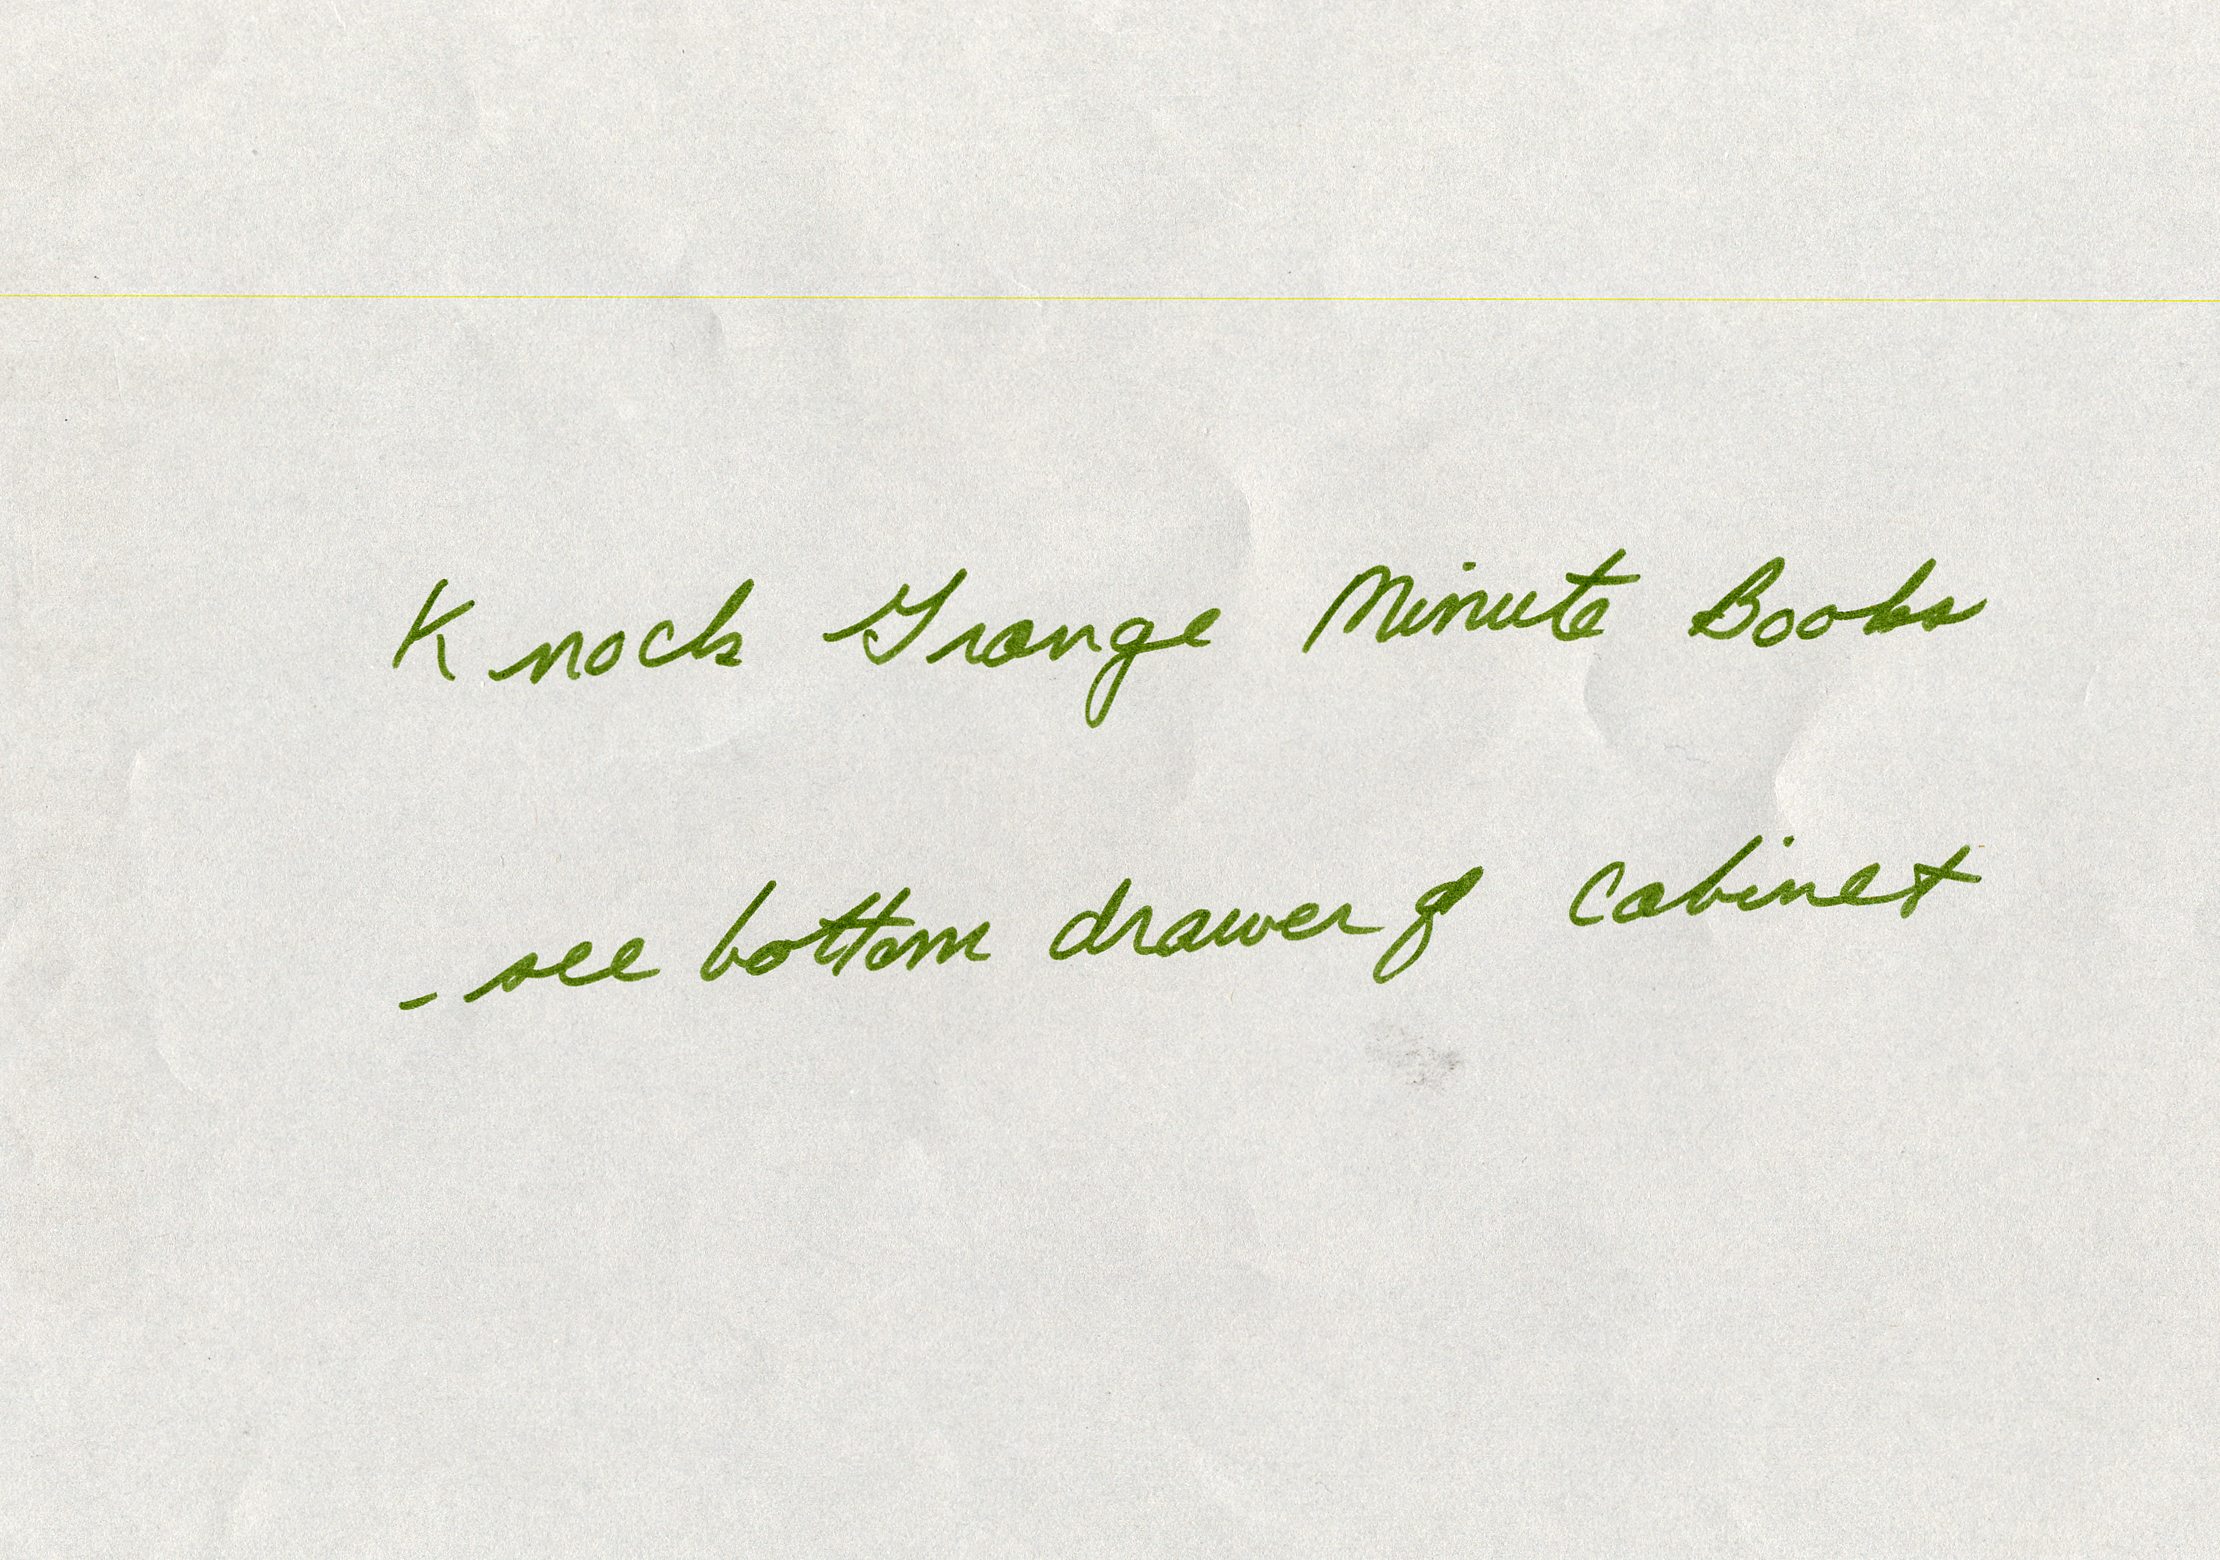 Knock Grange Minute Books
- see bottom drawer of cabinet